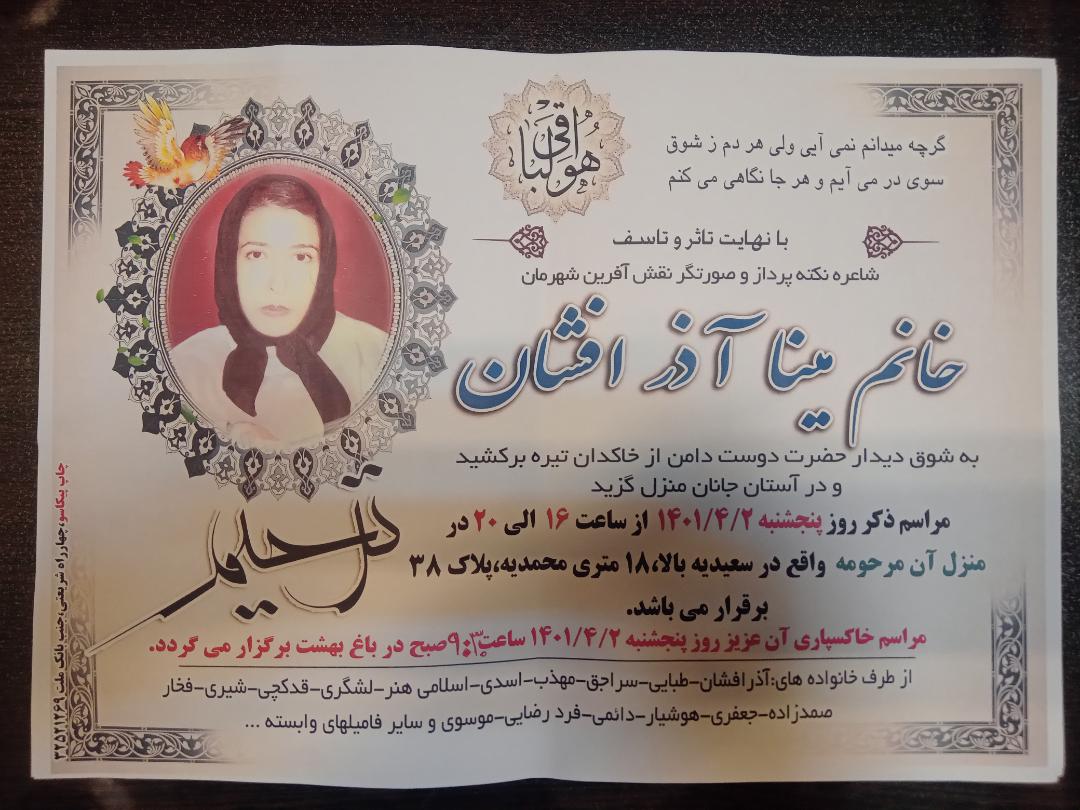 هوالباقی
گرچه میدانم نمی آیی ولی هر دم ز شوق
سوی در می آیم و هر جا نگاهی می کنم
با نهایت تاثر و تاسف
شاعره نکته پرداز و صورتگر نقش آفرین شهرمان
خانم مینا آذر افشان
به شوق دیدار حضرت دوست دامن از خاکدان تیره برکشید
و در آستان جانان منزل گزید
مراسم ذکر روز پنجشنبه ۱۴۰۱/۴/۲ از ساعت ۱۶ الی ۲۰ در
منزل آن مرحومه واقع در سعیدیه بالا،۱۸ متری محمدیه،پلاک ۳۸
برقرار می باشد.
مراسم خاکسپاری آن عزیز روز پنجشنبه ۱۴۰۱/۴/۲ ساعت ۹:۳۰ صبح در باغ بهشت برگزار می گردد.
از طرف خانواده های:آذرافشان-طبایی-سراجق-مهذب-اسدی-اسلامی هنر-لشگری-قدکچی-شیری-فخار
صمدزاده-جعفری-هوشیار-دائمی-فرد رضایی-موسوی و سایر فامیلهای وابسته ...
ترحیم
چاپ پیکاسو،چهارراه شریعتی،جنب بانک ملت ۳۲۵۲۱۲۶۹